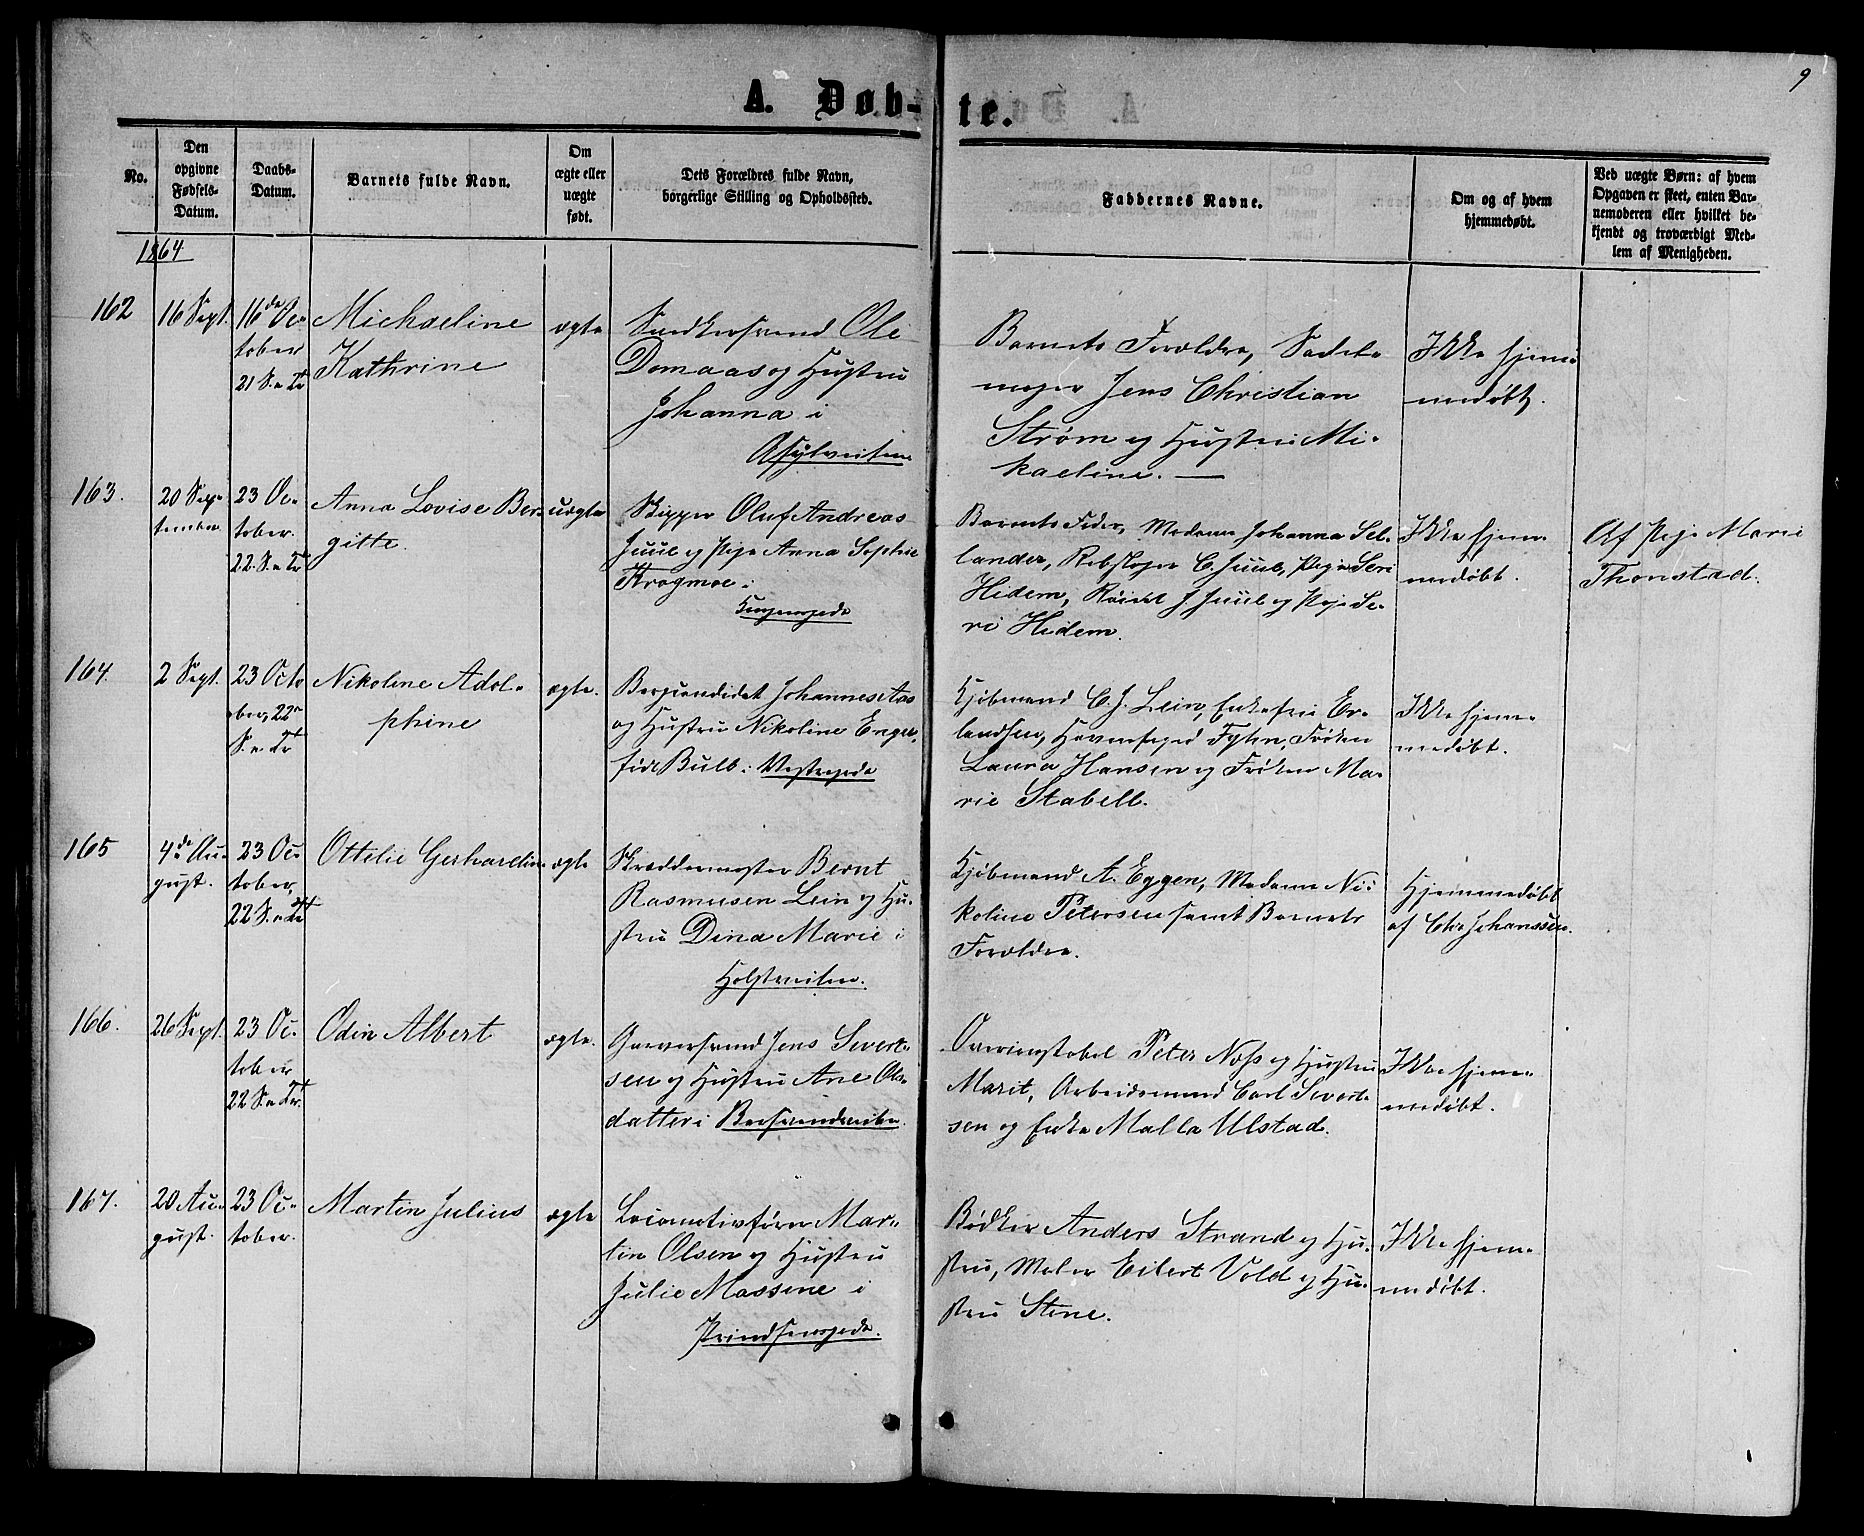 9
A. Døb-te.
No.
Den opgivne Fødsels-Datum.
Daabs-Datum.
Barnets fulde Navn.
Om ægte eller uægte født.
Dets Forældres fulde Navn, borgerlige Stilling og Opholdssted.
Faddernes Navne.
Om og af hvem hjemmedøbt.
Ved uægte Børn: af hvem Opgaven er skeet, enten Barnemoderen eller hvilket bekjendt og troværdigt Medlem af Menigheden.
1864
162
16 Sept.
16de Oc-
tober
21 S. e Tr
Michaeline
Kathrine
ægte
Snedkersvend Ole
Domaas og Hustru
Johanna i
Asylveiten
Barnets Forældre, Sadel-
mager Jens Christian
Strøm og Hustru Mi-
kaeline. —
Ikke hjem-
medøbt.
163.
20 Sep-
tember
23 Oc-
tober.
22. S. e Tr
Anna Lovise Ber-
gitte.
uægte
Skipper Oluf Andreas
Juul og Pige Anna Sophie
Krogmoe i
Kongensgade
Barnets Fader, Madame Johanna Sel-
lander, Rebslager C. Juul, Pige Seri
Hidem, J. Juul og Pige Se-
ri Hidem.
Ikke hjem-
medøbt.
Af Pige Marie
Thonstad.
164.
2 Sept.
23 Octo
ber, 22n
S. e. Tr
Nikoline Adol-
phine
ægte.
Bergcandidat Johannes Aas
og Hustru Nikoline Enge-
Bull i Vestregade
Kjøbmand C. J. Lein, Enkefru Er-
landsen, Fylen, Frøken
Laura Hansen og Frøken Ma-
rie Stabell.
Ikke hjem-
medøbt.
165
4de Au-
gust.
23 Oc-
tober,
22 S. e Tr
Ottelie Gerhardine
ægte
Skræddermester Bernt
Rasmusen Lein og Hu-
stru Dina Marie i
Holstveiten.
Kjøbmand A. Eggen, Madame Ni-
koline Petersen samt Barnets
Forældre.
Hjemmedøbt
af Chr. Johanssen.
166.
26 Sept.
23 Oc-
tober
22 S. e Tr.
Odin Albert
ægte.
Garversvend Jens Sivert-
sen og Hustru Ane Ols-
datter i
Peter Næss og Hustru
Marit, Arbeidsmand Carl Sivert-
sen og Enke Malla Ulstad.
Ikke hjem-
medøbt.
167.
20 Au-
gust.
23 Oc-
tober.
Martin Julius
ægte
Locomotivfører Mar-
tin Olsen og Hustru
Julie Massine i
Prindsensgade.
Bødker Anders Strand og Hu-
stru, Maler Eilert Vold og Hu-
stru Stine.
Ikke hjem-
medøbt.